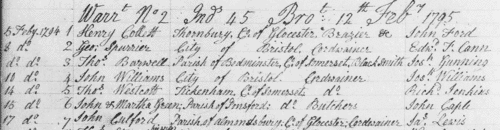 Warrt No 2 Ind 45 Brot 12th Feby 1795
5 Feby 1794 1 Henry Collett Thornbury, Co of Glocester Brazier &c John Ford
8 do 2 Geo: Spurrier City of Bristol Cordwainer Edwd T. Cann
do do 3 Thos Barwell Parish of Bedminster, C. of Somerset, Black Smith Jos Gunning
10 do 4 John Williams City of Bristol Cordwainer Jos Williams
14 do 5 Thos Westcott Tickenham, C. of Somerset do Richd Jenkins
16 do 6 John & Martha Green, Parish of do Butchers John Cable
17 do 7 John Parish of Almondsbury, C. of Glocester: Cordwainer Jas Lewis